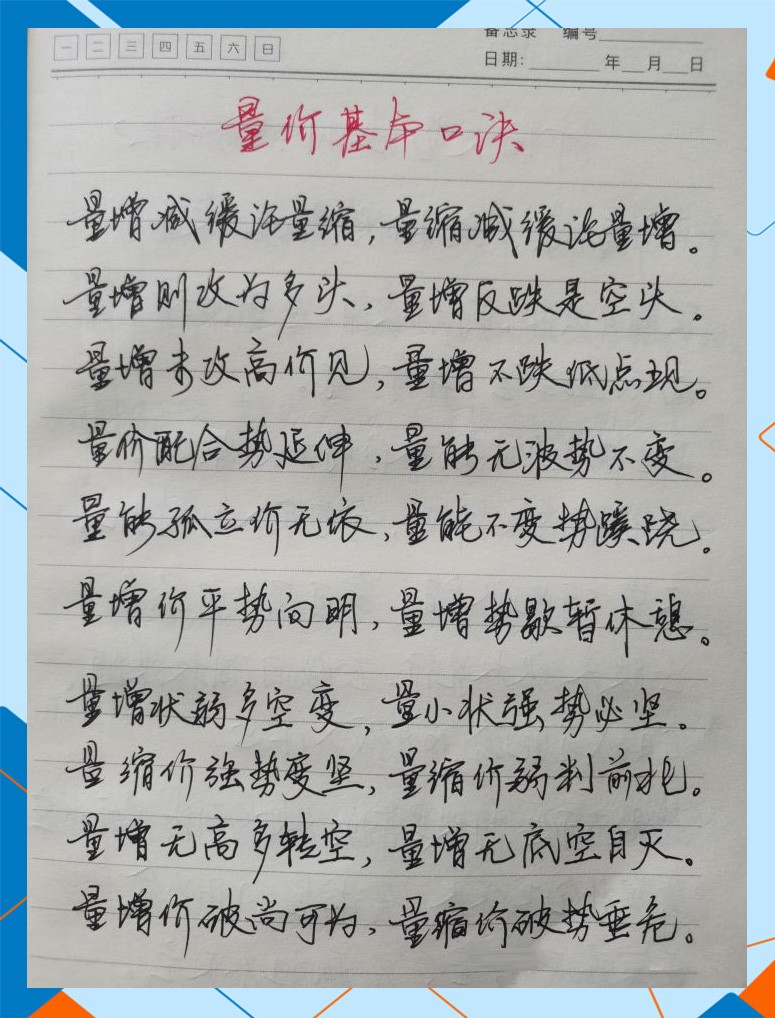 一 二 三 四 五 六 日
备忘录 编号
日期: 年 月 日
量价基本口诀
量增减缓论量缩,量缩减缓论量增。
量增则攻为多头,量增反跌是空头。
量增未攻高价见,量增不跌低点现。
量价配合势延伸,量能无波势不变。
量能孤立价无依,量能不变势蹊跷。
量增价平势向明,量增势歇暂休憩。
量增状弱多空变,量小状强势必坚。
量缩价强势变坚,量缩价弱判前兆。
量增无高多转空,量增无底空自灭。
量增价破尚可为,量缩价破势垂危。